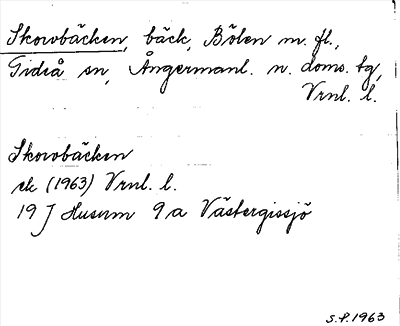 Skorobäcken, bäck, Bölen m. fl.,
Gideå sn, Ångermanl. n. doms. tg,
Vrnl. l.
Skorobäcken
ek (1963) Vrnl. l.
19 J Husum 9a Västergissjö
S.P. 1963